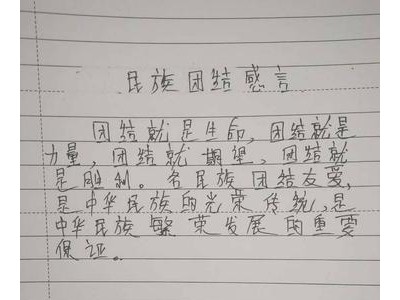 民族团结感言
团结就是生命，团结就是
力量，团结就期望、团结就
是胜利。各民族团结友爱，
是中华民族的光荣传统，是
中华民族繁荣发展的重要
保证。